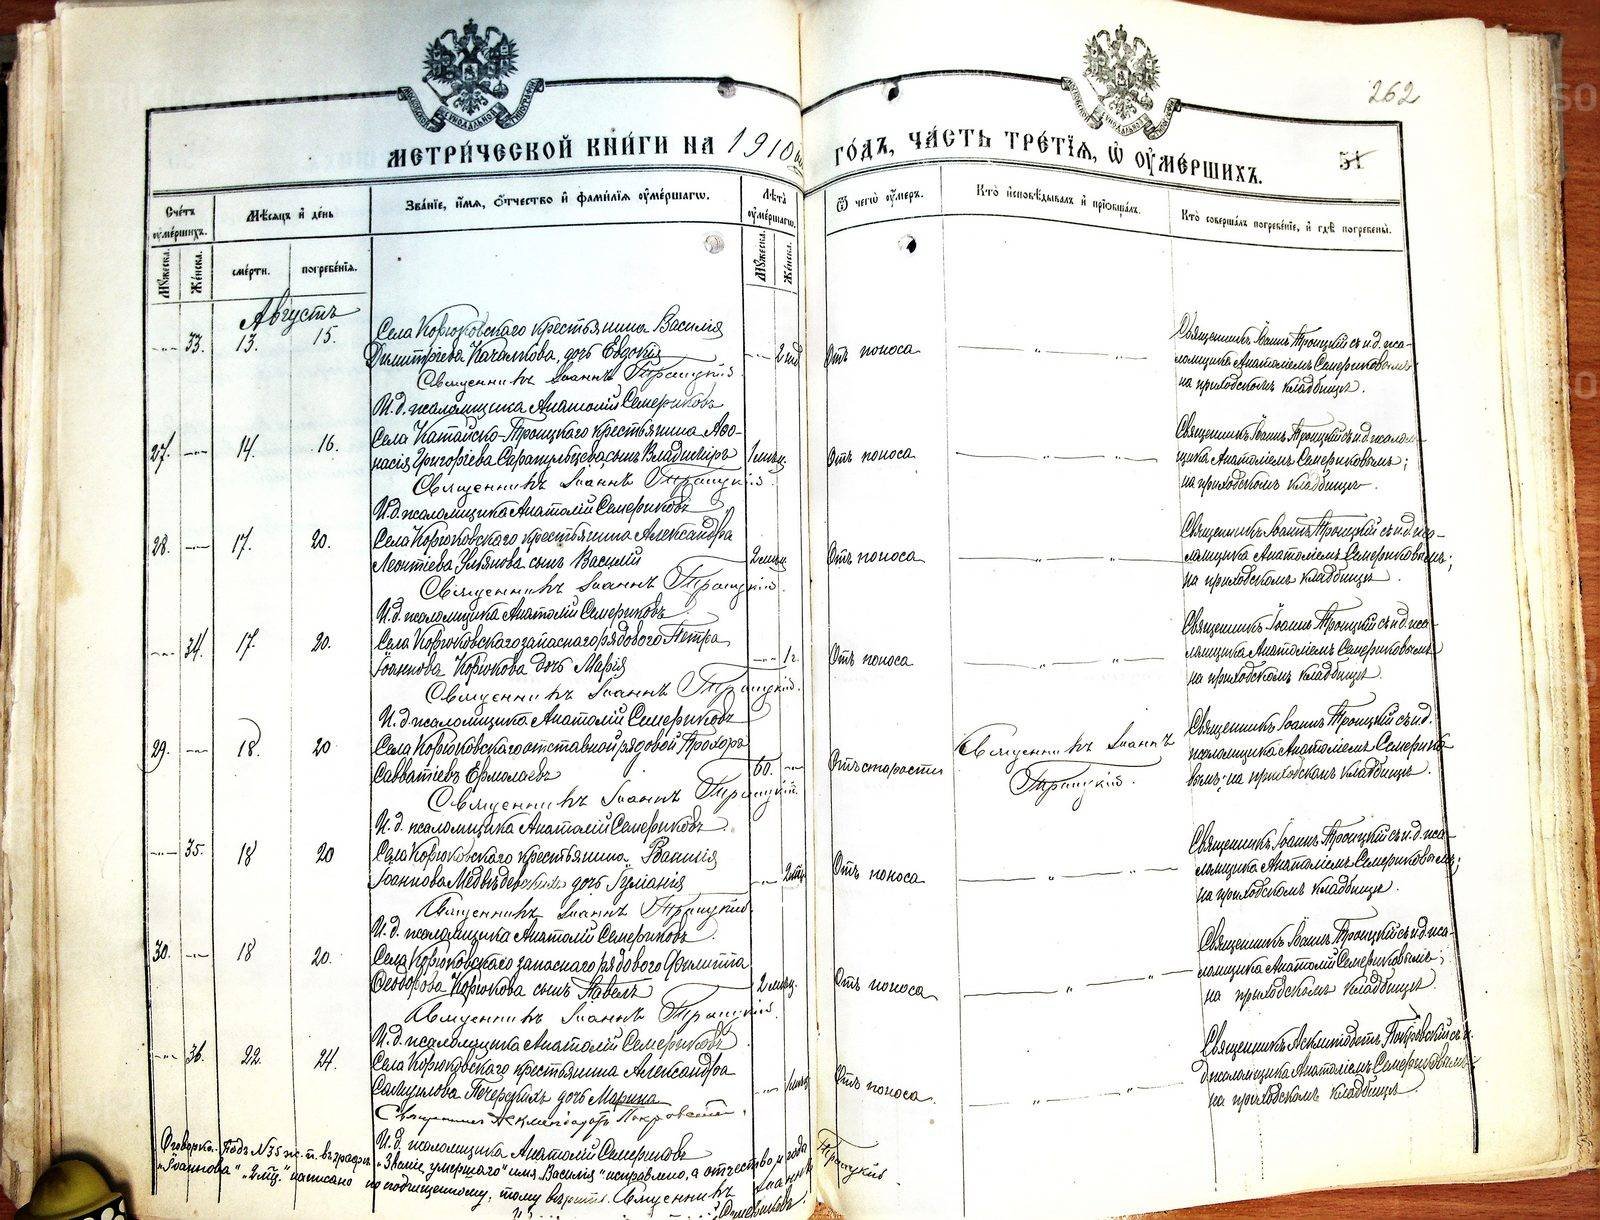 262
МЕТРИ́ЧЕСКОЙ КНИ́ГИ НА 1910й ГО́ДЪ, ЧА́СТЬ ТРЕ́ТІѦ, Ѡ ОУМЕ́РШИХЪ.
51
Сче́тъ оуме́ршихъ.
Мѣ́сяцъ и де́нь
Зва́ніе, и́мя, о́тчество и фами́лія оуме́ршагѡ.
Лѣ́та оуме́ршагѡ.
Ѿ чегѡ̀ оу́меръ.
Кто̀ исповѣ́дывалъ и пріобща́лъ.
Кто̀ соверша́лъ погребе́ніе, и гдѣ̀ погребены̀.
Мꙋ́жеска.
Же́нска.
сме́рти.
погребе́нія.
Мꙋ́жеска.
Же́нска.
Августъ
33. 13. 15.
Села Корюковскаго крестьянина Василія
Димитріева Качалкова, дочь Евдокія
Священникъ Іоаннъ Троицкій
И.д. псаломщика Анатолій Семериковъ
2 нд
Отъ поноса
Священникъ Іоаннъ Троицкій съ и.д. пса-
ломщика Анатоліемъ Семериковымъ
на приходскомъ кладбищѣ.
27. 14. 16.
Села Катайско-Троицкаго крестьянина Аѳо-
насія Григорьева Сарапульцева, сынъ Владиміръ
Священникъ Іоаннъ Троицкій.
И.д. псаломщика Анатолій Семериковъ
1 мѣсц.
Отъ поноса
Священникъ Іоаннъ Троицкій съ и.д. псалом-
щика Анатоліемъ Семериковымъ;
на приходскомъ кладбищѣ.
28. 17. 20.
Села Корюковскаго крестьянина Александра
Леонтіева Ульянова сынъ Василій
Священникъ Іоаннъ Троицкій.
И.д. псаломщика Анатолій Семериковъ
2 мѣсц.
Отъ поноса
Священникъ Іоаннъ Троицкій съ и.д. пса-
ломщика Анатоліемъ Семериковымъ;
на приходскомъ кладбищѣ.
34. 17. 20.
Села Корюковскаго запаснаго рядоваго Петра
Іоаннова Корюкова дочь Марія
Священникъ Іоаннъ Троицкій.
И.д. псаломщика Анатолій Семериковъ
1 г.
Отъ поноса
Священникъ Іоаннъ Троицкій съ и.д. пса-
ломщика Анатоліемъ Семериковымъ
на приходскомъ кладбищѣ.
29. 18. 20
Села Корюковскаго отставной рядовой Прохоръ
Савватіевъ Ермолаевъ
Священникъ Іоаннъ Троицкій.
И.д. псаломщика Анатолій Семериковъ.
60.
Отъ старости
Священникъ Іоаннъ
Троицкій.
Священникъ Іоаннъ Троицкій съ и.д.
псаломщика Анатоліемъ Семерико-
вымъ; на приходскомъ кладбищѣ.
35. 18 20
Села Корюковскаго крестьянина Василія
Іоаннова Медвѣдевскихъ дочь Іуліанія
Священникъ Іоаннъ Троицкій.
И.д. псаломщика Анатолій Семериковъ.
2 мц.
Отъ поноса
Священникъ Іоаннъ Троицкій съ и.д. пса-
ломщика Анатоліемъ Семериковымъ;
на приходскомъ кладбищѣ.
30. 18 20.
Села Корюковскаго запаснаго рядового Филиппа
Ѳеодорова Корюкова сынъ Павелъ
Священникъ Іоаннъ Троицкій.
И.д. псаломщика Анатолій Семериковъ
2 мѣсц.
Отъ поноса
Священникъ Іоаннъ Троицкій съ и.д. пса-
ломщика Анатолій Семериковымъ;
на приходскомъ кладбищѣ.
36. 22. 24.
Села Корюковскаго крестьянина Александра
Самуилова Печерскихъ дочь Марина
Священникъ Асклипіодотъ Покровскій.
И.д. псаломщика Анатолій Семериковъ
1 мѣсц.
Отъ поноса
Священникъ Асклипіодотъ Покровскій съ и.
д. псаломщика Анатоліемъ Семериковымъ
на приходскомъ кладбищѣ.
Оговорка. Подъ №35 ж.п. въ графѣ "Званіе умершаго" имя "Василія" исправлено, а отчество и года
"Іоаннова" "2 мц." написано по подчищенному, тому вѣрить. Священникъ Іоаннъ Троицкій.
Семериковъ.